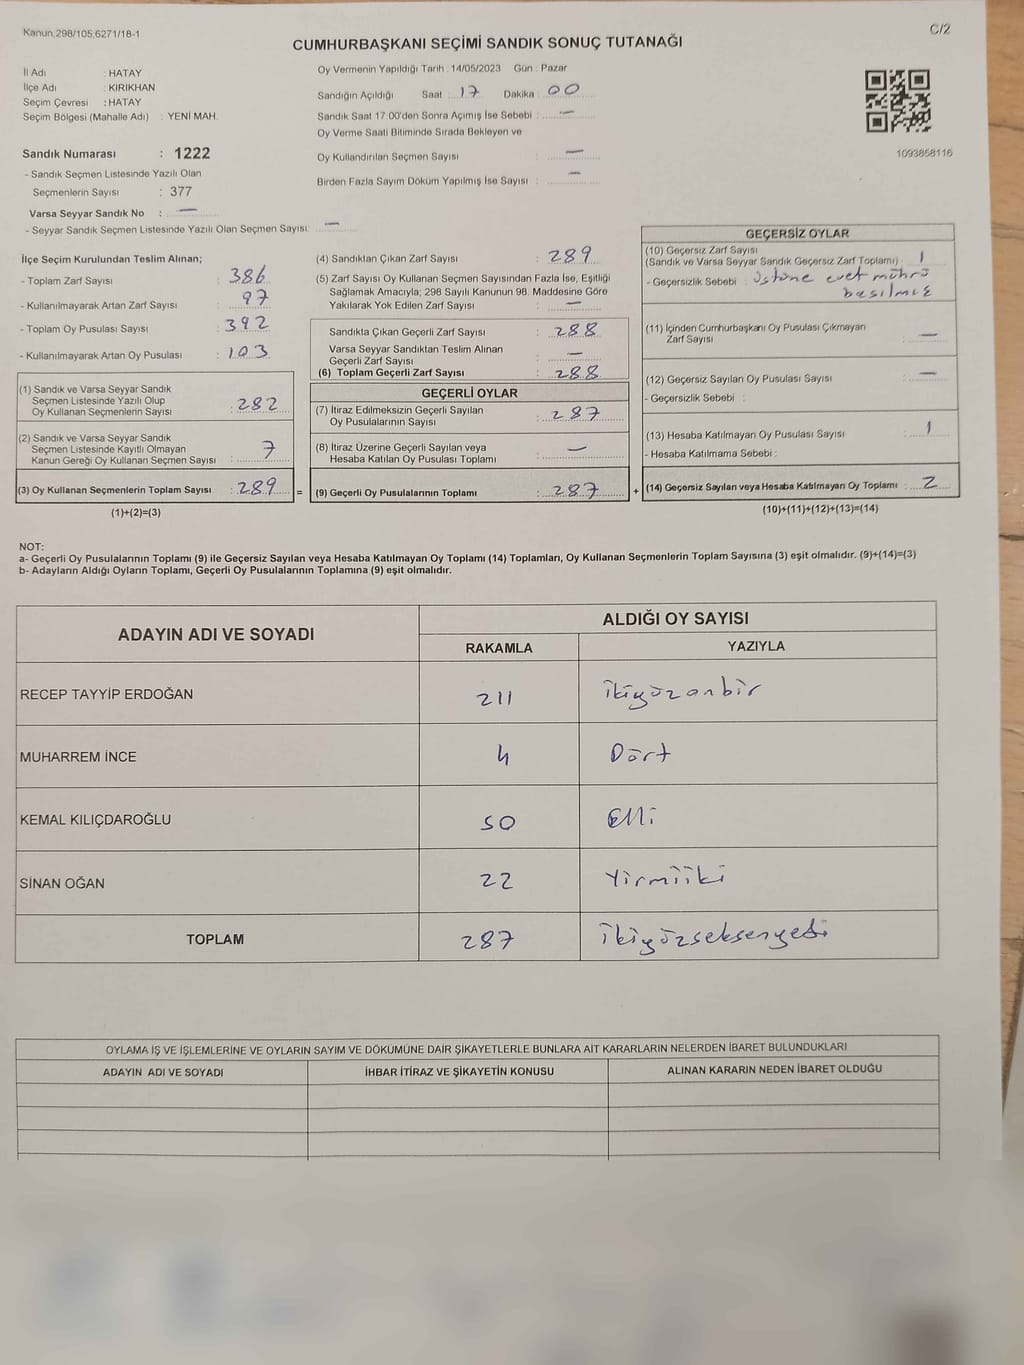 Kanun,298/105,6271/18-1
C/2
CUMHURBAŞKANI SEÇİMİ SANDIK SONUÇ TUTANAĞI
İl Adı : HATAY
İlçe Adı : KIRIKHAN
Seçim Çevresi : HATAY
Seçim Bölgesi (Mahalle Adı) : YENİ MAH.
Sandık Numarası : 1222
- Sandık Seçmen Listesinde Yazılı Olan
Seçmenlerin Sayısı : 377
Varsa Seyyar Sandık No : —
- Seyyar Sandık Seçmen Listesinde Yazılı Olan Seçmen Sayısı: —
Oy Vermenin Yapıldığı Tarih : 14/05/2023 Gün : Pazar
Sandığın Açıldığı Saat : 17 Dakika : 00
Sandık Saat 17:00'den Sonra Açımış İse Sebebi : —
Oy Verme Saati Bitiminde Sırada Bekleyen ve
Oy Kullandırılan Seçmen Sayısı : —
Birden Fazla Sayım Döküm Yapılmış İse Sayısı : —
1093858116
İlçe Seçim Kurulundan Teslim Alınan;
- Toplam Zarf Sayısı : 386
- Kullanılmayarak Artan Zarf Sayısı : 97
- Toplam Oy Pusulası Sayısı : 392
- Kullanılmayarak Artan Oy Pusulası : 103
(1) Sandık ve Varsa Seyyar Sandık
Seçmen Listesinde Yazılı Olup
Oy Kullanan Seçmenlerin Sayısı : 282
(2) Sandık ve Varsa Seyyar Sandık
Seçmen Listesinde Kayıtlı Olmayan
Kanun Gereği Oy Kullanan Seçmen Sayısı : 7
(3) Oy Kullanan Seçmenlerin Toplam Sayısı : 289 =
(1)+(2)=(3)
(4) Sandıktan Çıkan Zarf Sayısı : 289
(5) Zarf Sayısı Oy Kullanan Seçmen Sayısından Fazla İse, Eşitliği
Sağlamak Amacıyla; 298 Sayılı Kanunun 98. Maddesine Göre
Yakılarak Yok Edilen Zarf Sayısı : —
Sandıkta Çıkan Geçerli Zarf Sayısı : 288
Varsa Seyyar Sandıktan Teslim Alınan
Geçerli Zarf Sayısı : —
(6) Toplam Geçerli Zarf Sayısı : 288
GEÇERLİ OYLAR
(7) İtiraz Edilmeksizin Geçerli Sayılan
Oy Pusulalarının Sayısı : 287
(8) İtiraz Üzerine Geçerli Sayılan veya
Hesaba Katılan Oy Pusulası Toplamı : —
(9) Geçerli Oy Pusulalarının Toplamı : 287 +
GEÇERSİZ OYLAR
(10) Geçersiz Zarf Sayısı
(Sandık ve Varsa Seyyar Sandık Geçersiz Zarf Toplamı) : 1
- Geçersizlik Sebebi : üstüne evet mührü
basılmış
(11) İçinden Cumhurbaşkanı Oy Pusulası Çıkmayan
Zarf Sayısı : —
(12) Geçersiz Sayılan Oy Pusulası Sayısı : —
- Geçersizlik Sebebi :
(13) Hesaba Katılmayan Oy Pusulası Sayısı : 1
- Hesaba Katılmama Sebebi :
(14) Geçersiz Sayılan veya Hesaba Katılmayan Oy Toplamı : 2
(10)+(11)+(12)+(13)=(14)
NOT:
a- Geçerli Oy Pusulalarının Toplamı (9) ile Geçersiz Sayılan veya Hesaba Katılmayan Oy Toplamı (14) Toplamları, Oy Kullanan Seçmenlerin Toplam Sayısına (3) eşit olmalıdır. (9)+(14)=(3)
b- Adayların Aldığı Oyların Toplamı, Geçerli Oy Pusulalarının Toplamına (9) eşit olmalıdır.
ADAYIN ADI VE SOYADI ALDIĞI OY SAYISI
RAKAMLA YAZIYLA
RECEP TAYYİP ERDOĞAN 211 ikiyüzonbir
MUHARREM İNCE 4 Dört
KEMAL KILIÇDAROĞLU 50 Elli
SİNAN OĞAN 22 Yirmiiki
TOPLAM 287 ikiyüzseksenyedi
OYLAMA İŞ VE İŞLEMLERİNE VE OYLARIN SAYIM VE DÖKÜMÜNE DAİR ŞİKAYETLERLE BUNLARA AİT KARARLARIN NELERDEN İBARET BULUNDUKLARI
ADAYIN ADI VE SOYADI İHBAR İTİRAZ VE ŞİKAYETİN KONUSU ALINAN KARARIN NEDEN İBARET OLDUĞU